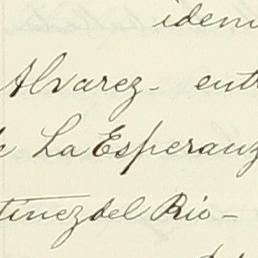 idem
Alvarez - ent
La Esperanz
tinez del Rio -